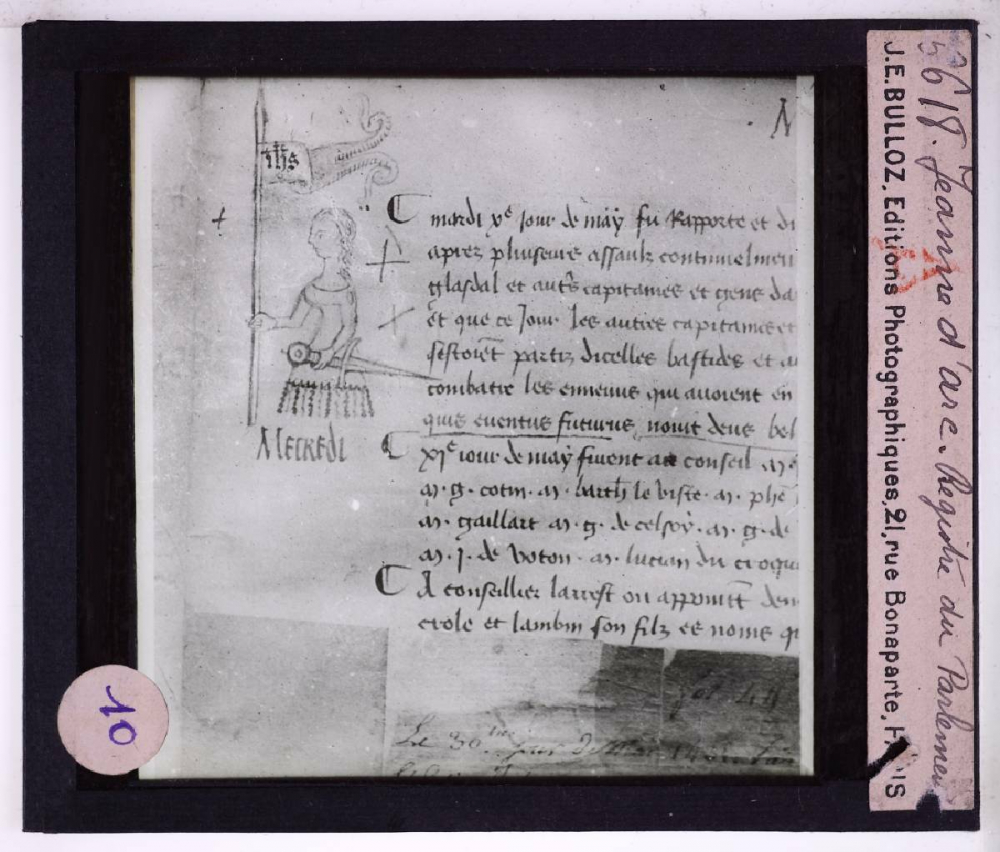 ihs
mardi xe jour de may fu Rapporte et di
aprez pluseurs assaulz continuelmen
glasdal et autrs capitaines et gens da
et que ce Jour les autres capitaines et
sestoient partiz dicelles bastides et a
combatre les ennemis qui avoient en
quis eventus futurus novit deus bel
MERCREDI
xje iour de may furent au conseil m
m. g. cotin. m. barth le viste. m. phe
m. gaillart m. g. de celsoy. m. g. de
m. j. de voton. m. lucian du croqu
A conseillier larrest ou appoint den
et lambin son filz es noms q
fol. 44
Le 30
10
5618. Jeanne d'arc. Registre du Parlement
J.E.BULLOZ. Editions Photographiques, 21, rue Bonaparte.